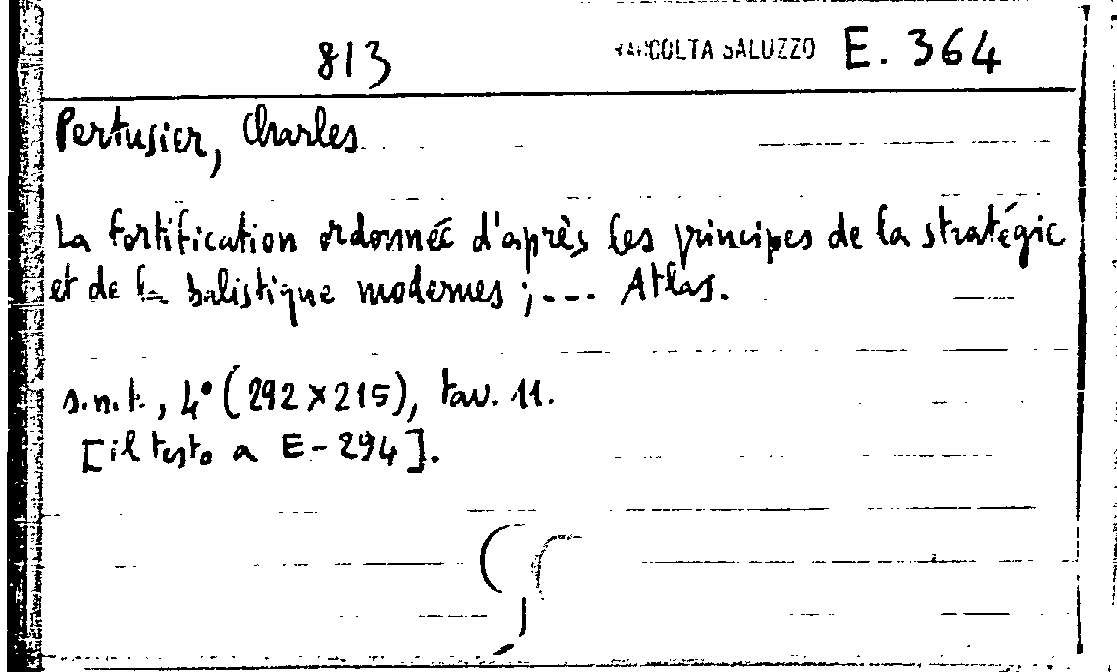 813 RACCOLTA SALUZZO E. 364
Pertusier, Charles
La fortification ordonnée d'après les principes de la stratégie
et de la balistique modernes ;... Atlas.
s.n.t., 4° (292 x 215), tav. 11.
[il testo a E-294].